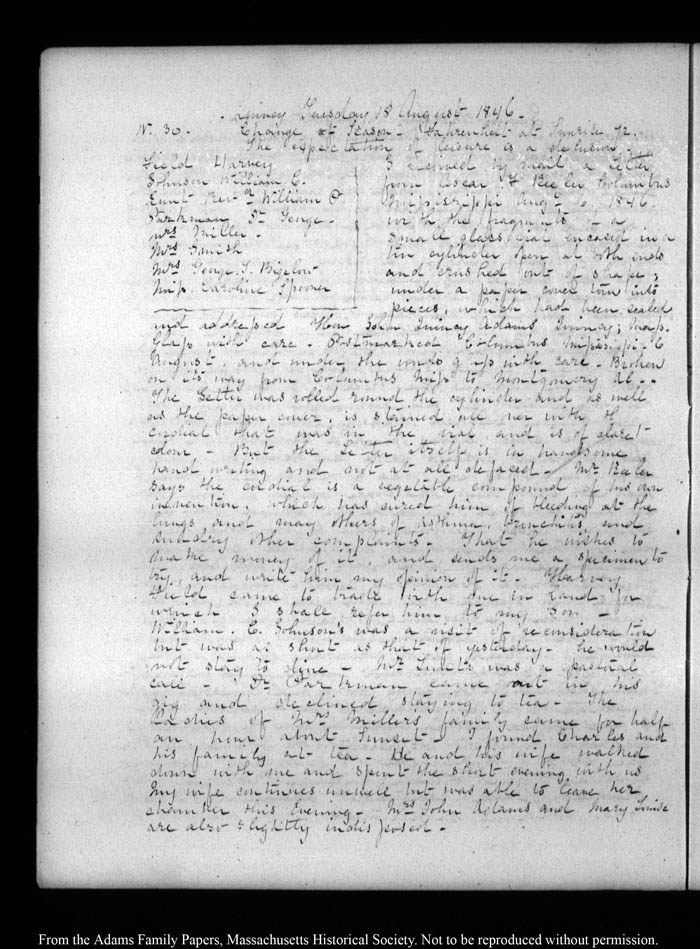 Quincy Tuesday 18 August 1846.
No. 30. Change of Season - Fahrenheit at Sunrise 72.
The expectation of leisure is a delusion.
Field Harvey
Johnson William C.
Lunt Revd. William P
Parkman Dr. George.
Mrs Miller.
Mrs Smith
Mrs George T. Bigelow
Miss Caroline Spooner
I received by mail a Letter
from Oscar F Beeler Columbus
Mississippi Augt. 6. 1846.
with the fragments of a
small glass vial encased in a
tin cylinder open at both ends
and crushed out of shape;
under a paper cover torn into
pieces, which had been sealed
and addressed Hon John Quincy Adams Quincy; Mass.
Glass with care. Postmarked Columbus Mississippi 6
August, and under the words glass with care - Broken
on its way from Columbus Miss to Montgomery Al. -
The Letter was rolled round the cylinder and as well
as the paper cover, is stained all over with the
cordial that was in the vial and is of claret
colour - But the Letter itself is in handsome
hand writing and not at all defaced. Mr Beeler
says the cordial is a vegetable compound of his own
invention, which has cured him of bleeding at the
lungs and many others of asthma, bronchitis, and
sundry other complaints. That he wishes to
make money of it, and sends me a specimen to
try, and write him my opinion of it. Harvey
Field came to trade with me in Land for
which I shall refer him to my Son -
William. C. Johnson's was a visit of reconsideration
but was as short as that of yesterday. he would
not stay to dine - Mr Lunt's was a pastoral
call - Dr Parkman came out in his
gig and declined staying to tea. The
Ladies of Mrs Millers family came for half
an hour about Sunset - I found Charles and
his family at tea - He and his wife walked
down with me and spent the short evening with us
My wife continues unwell but was able to leave her
chamber this Evening - Mrs John Adams and Mary Louisa
are also slightly indisposed -
From the Adams Family Papers, Massachusetts Historical Society. Not to be reproduced without permission.